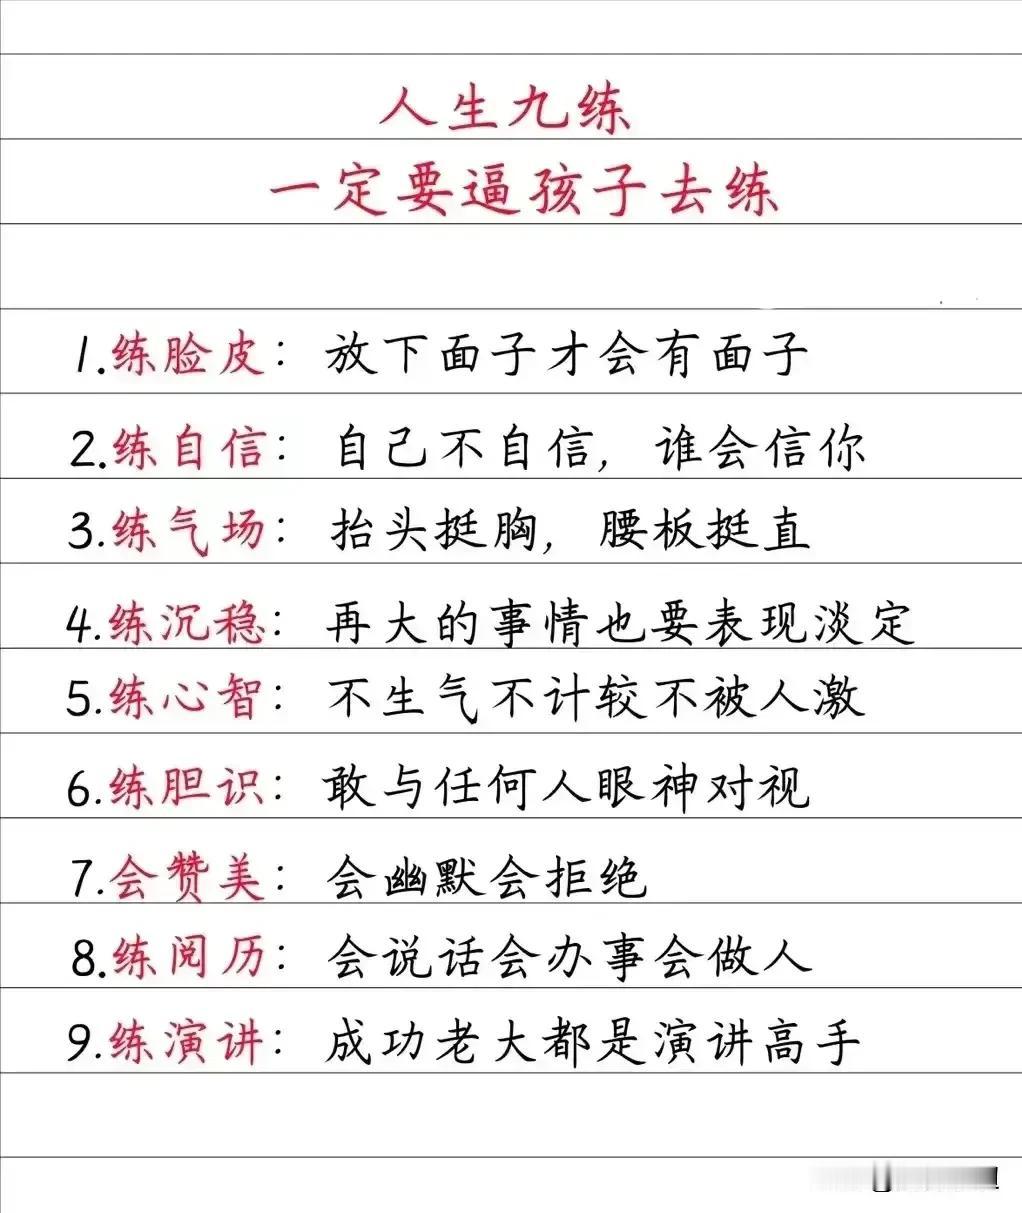 人生九练
一定要逼孩子去练
1.练脸皮：放下面子才会有面子
2.练自信：自己不自信，谁会信你
3.练气场：抬头挺胸，腰板挺直
4.练沉稳：再大的事情也要表现淡定
5.练心智：不生气不计较不被人激
6.练胆识：敢与任何人眼神对视
7.会赞美：会幽默会拒绝
8.练阅历：会说话会办事会做人
9.练演讲：成功老大都是演讲高手